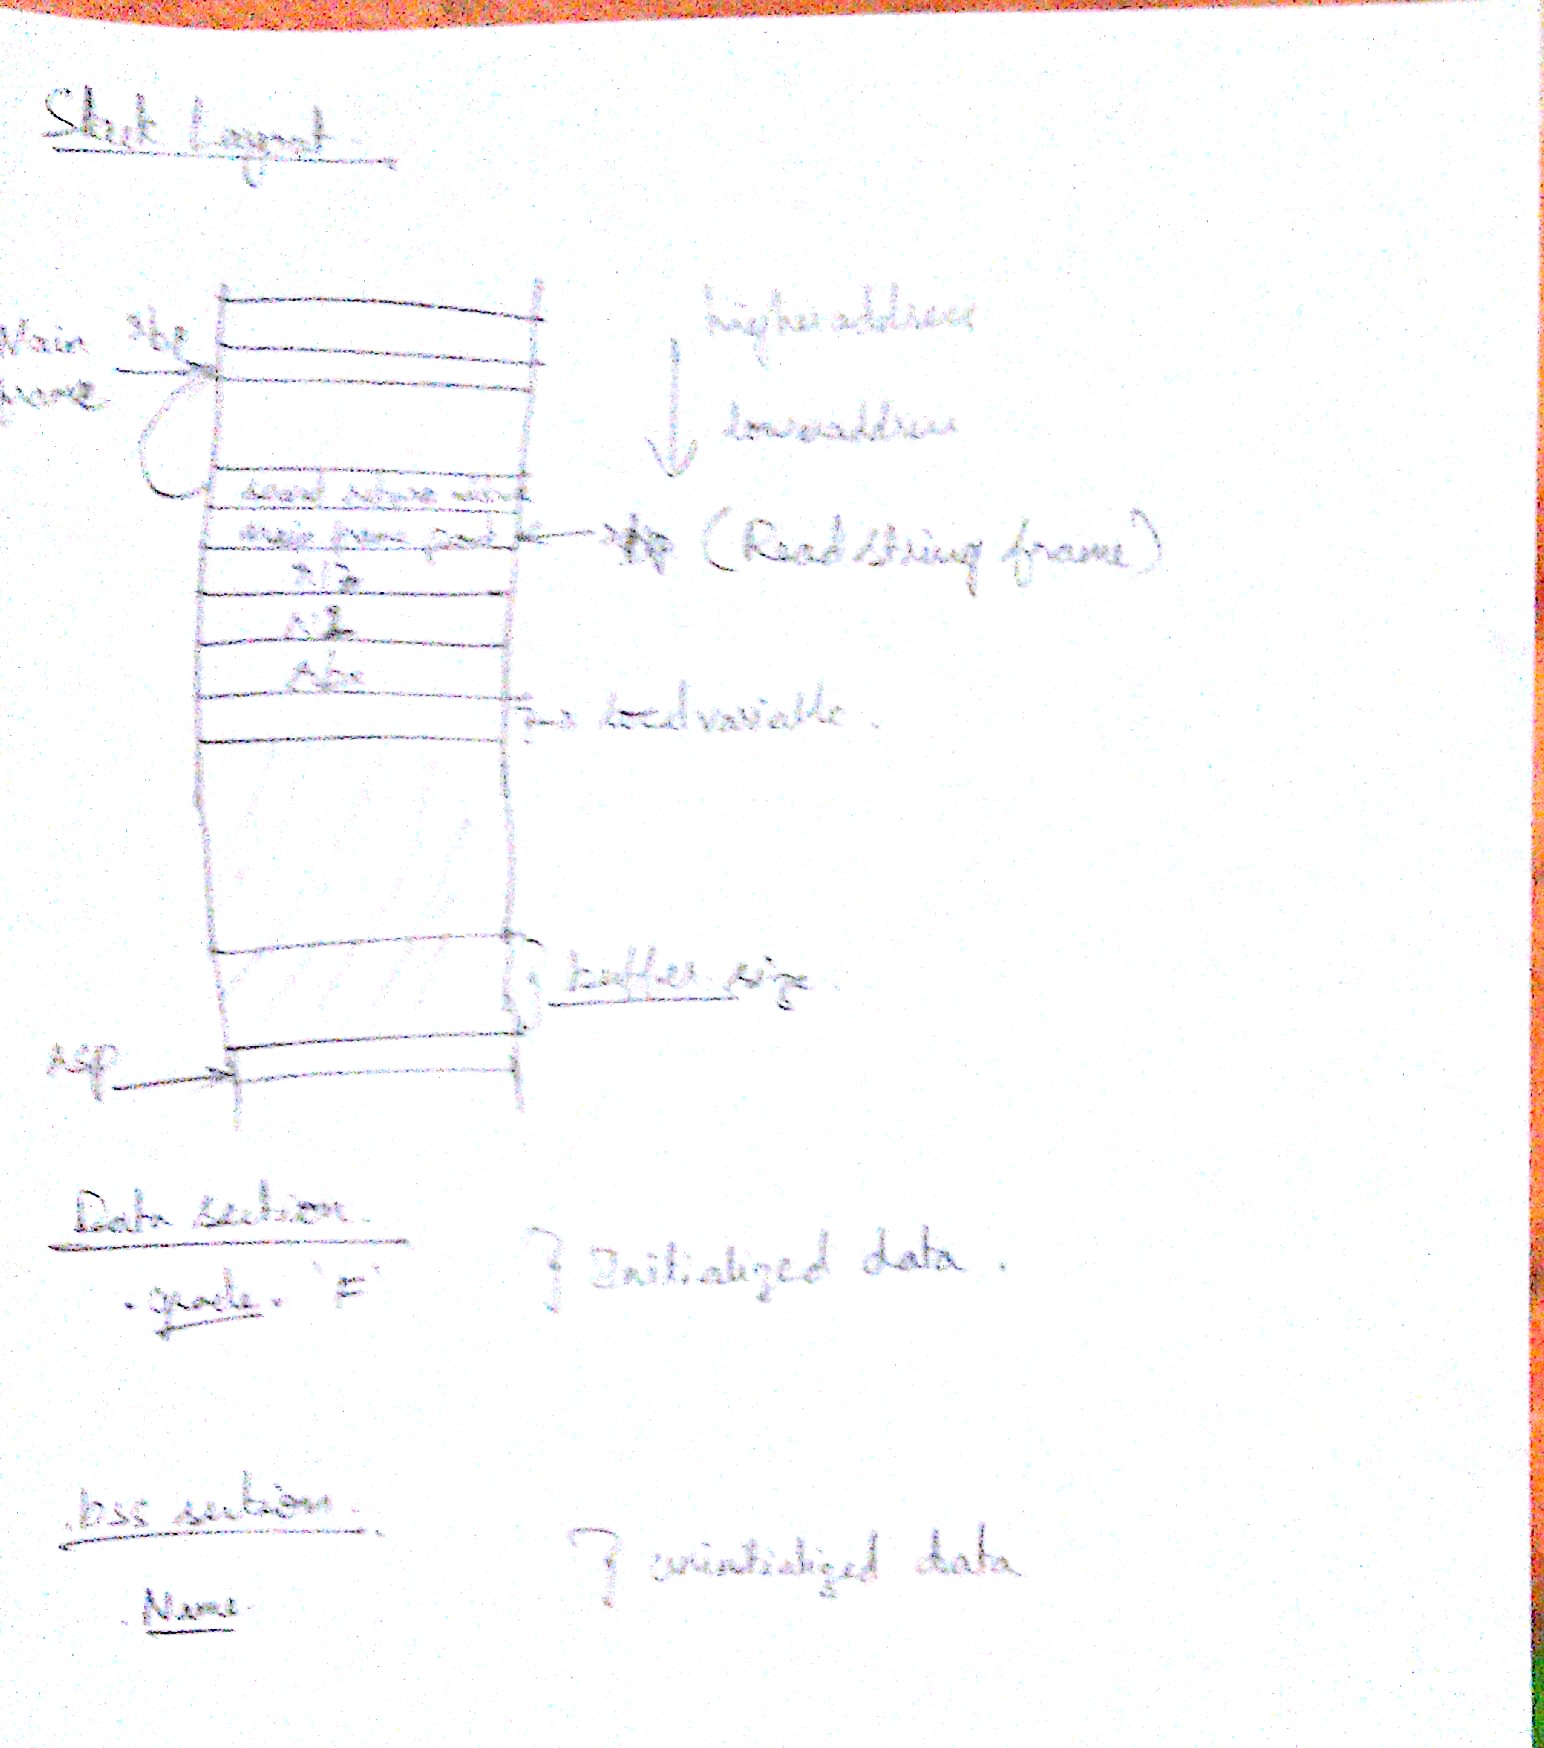 Stack Layout
Main rbp
frame
higher address
lower address
saved return
rbp (Read string frame)
rbx
local variable.
buffer size
rsp
Data section.
. grade. 'F'
} Initialized data.
.bss section.
. Name
} uninitialized data